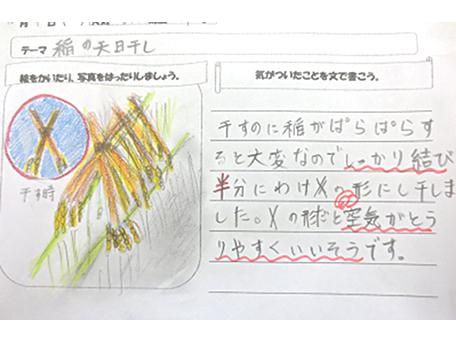 テーマ 稲の天日干し
絵をかいたり、写真をはったりしましょう。
干す時
気がついたことを文で書こう。
干すのに稲がぱらぱらす
ると大変なのでしっかり結び
半分にわけXの形にし干しま
した。Xの形だと空気がとう
りやすくいいそうです。